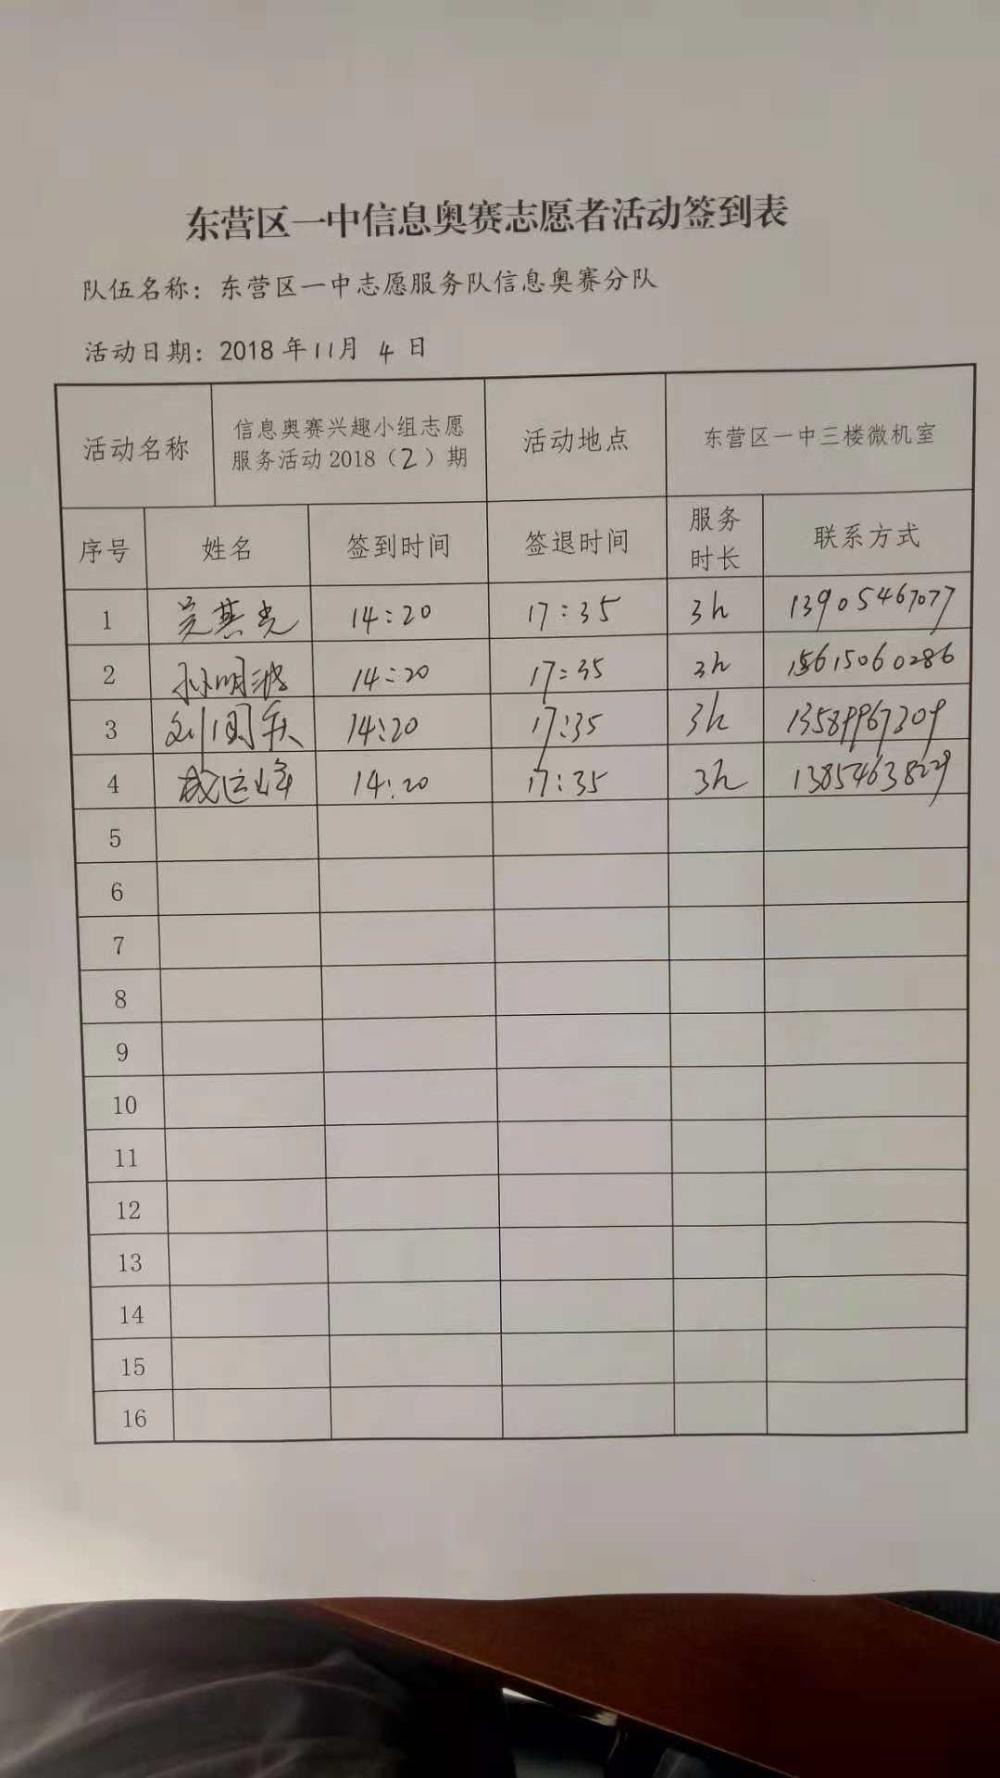 东营区一中信息奥赛志愿者活动签到表
队伍名称：东营区一中志愿服务队信息奥赛分队
活动日期：2018年11月4日
活动名称 信息奥赛兴趣小组志愿服务活动2018（2）期 活动地点 东营区一中三楼微机室
序号 姓名 签到时间 签退时间 服务时长 联系方式
1 吴其光 14:20 17:35 3h 13905467077
2 孙明波 14:20 17:35 3h 15615060286
3 刘国庆 14:20 17:35 3h 13589967309
4 成运峰 14:20 17:35 3h 13854638229
5
6
7
8
9
10
11
12
13
14
15
16